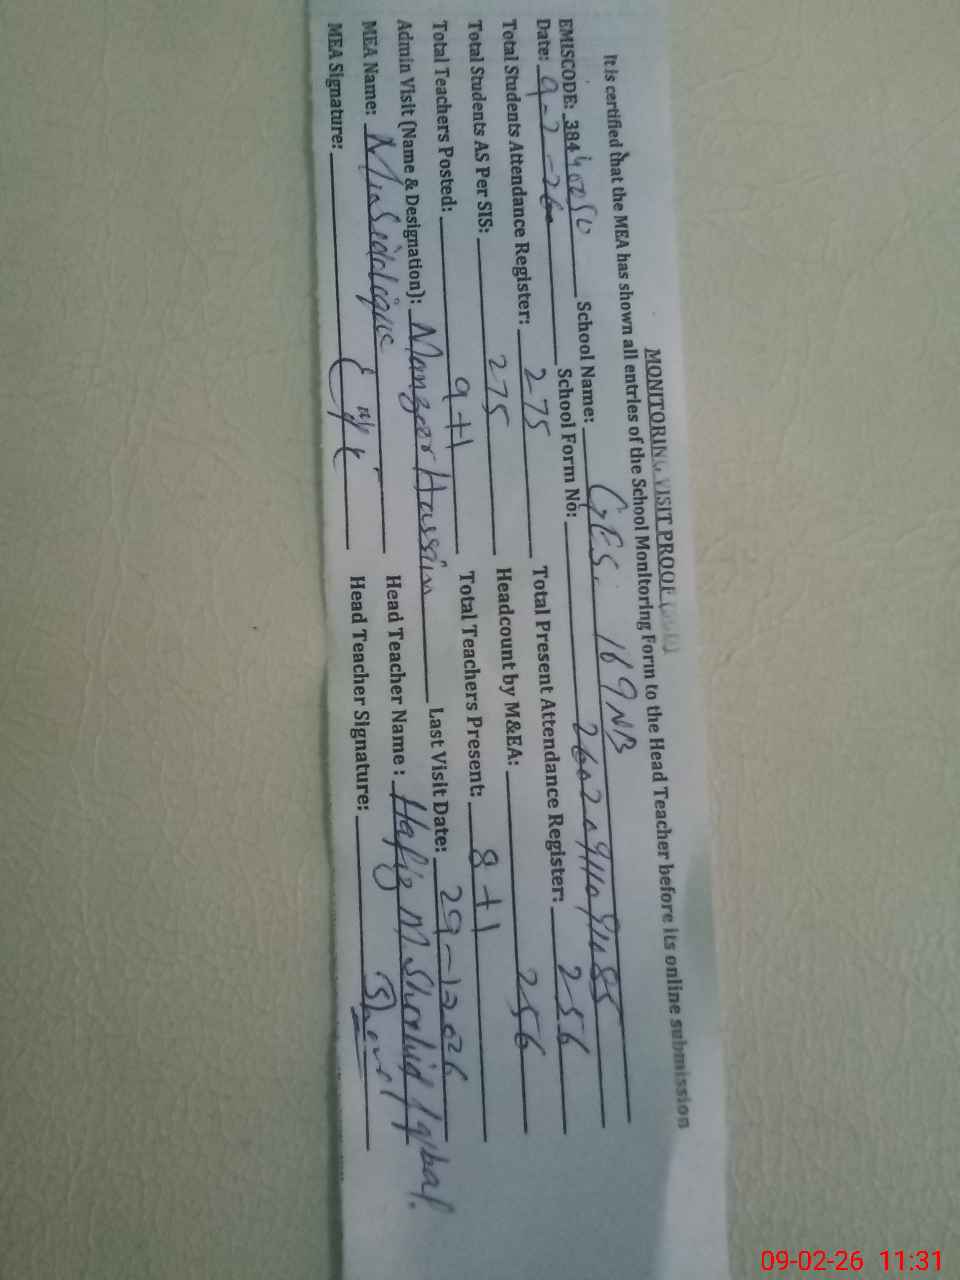 MONITORING VISIT PROOF
It is certified that the MEA has shown all entries of the School Monitoring Form to the Head Teacher before its online submission
EMISCODE: 38440250 School Name: GES. 169NB
Date: 9-2-26 School Form No:
Total Students Attendance Register: 275 Total Present Attendance Register: 256
Total Students AS Per SIS: 275 Headcount by M&EA: 256
Total Teachers Posted: 9+1 Total Teachers Present: 8+1
Admin Visit (Name & Designation): Manzoor Hussain Last Visit Date: 29-1-2026
MEA Name: Head Teacher Name: Hafiz M Shahid Iqbal.
MEA Signature: Head Teacher Signature:
09-02-26 11:31